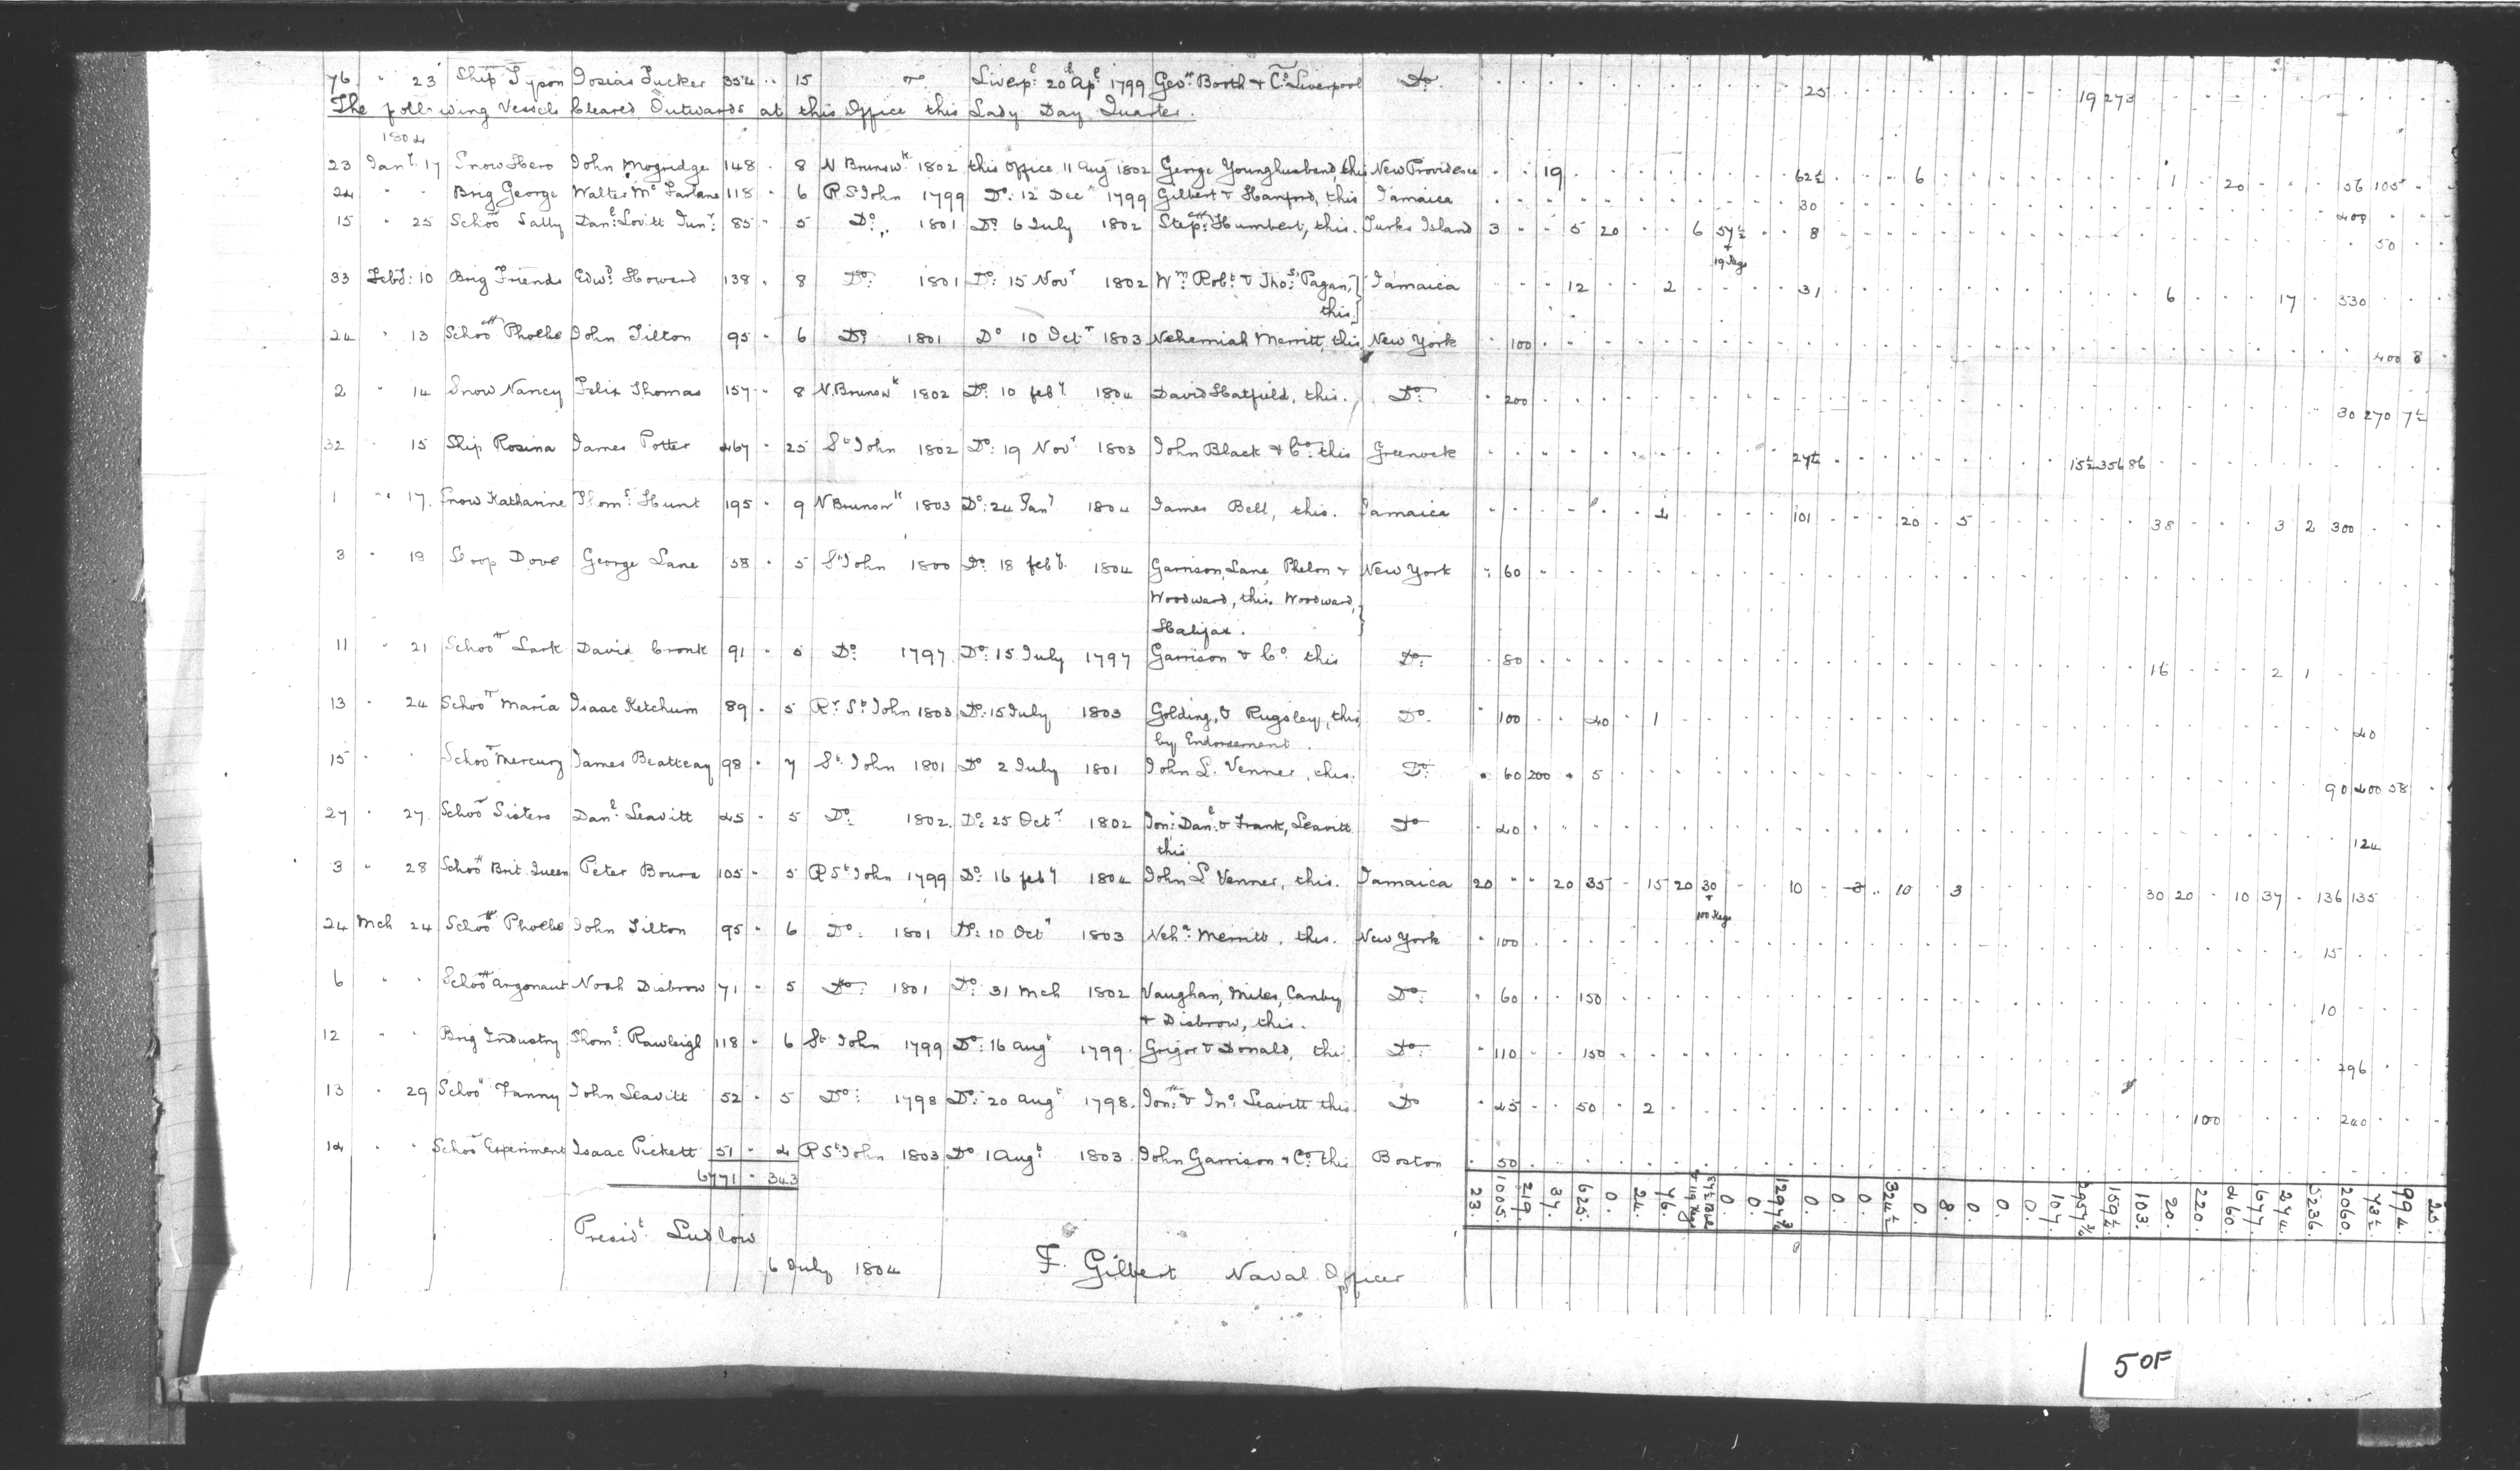 76 " 23 Ship Tyson Josias Tucker 354 " 15 Do Liverpl: 20 Apl: 1799 Geo: Booth & Co Liverpool Do. 25 19 273
The following Vessels Cleared Outwards at this Office this Lady Day Quarter.
1804
23 Jany. 17 Snow Hero John Mogridge 148 " 8 N Brunswk. 1802 this office 11 Aug 1802 George Younghusband, this New Providence 19 62½ 6 1 20 56 105
24 " " Brig George Walter Mc Farlane 118 " 6 R St John 1799 Do: 12 Decr 1799 Gilbert & Hanford, this Jamaica 30 400
15 " 25 Schoor Sally Danl: Lovitt Junr: 85 " 5 Do: 1801 Do: 6 July 1802 Stepn: Humbert, this. Turks Island 3 5 20 6 57½ 8 50
+
19 Kegs
33 Feby: 10 Brig Friends Edwd: Howard 138 " 8 Do: 1801 Do: 15 Novr 1802 Wm: Robt: & Thos: Pagan, Jamaica 12 2 31 6 17 330
this.
24 " 13 Schoor Phoebe John Tilton 95 " 6 Do: 1801 Do 10 Octr 1803 Nehemiah Merritt, this New York 100 400 8
2 " 14 Snow Nancy Felix Thomas 157 " 8 N. Brunswk 1802 Do: 10 feby. 1804 David Hatfield, this. Do: 200 30 270 7½
32 " 15 Ship Rosina James Potter 467 " 25 St John 1802 Do: 19 Novr 1803 John Black & Co: this Greenock 27½ 15½ 356 86
1 " 17. Snow Katharine Thoms: Hunt 195 " 9 N Brunswk 1803 Do: 24 Jany 1804 James Bell, this. Jamaica 101 20 5 38 3 2 300
3 " 18 Sloop Dove George Lane 58 " 5 St John 1800 Do: 18 feby. 1804 Garrison, Lane, Phelon & New York 60
Woodward, this. Woodward,
Halifax.
11 " 21 Schoor Lark David Cronk 91 " 5 Do: 1797 Do: 15 July 1797 Garrison & Co. this Do: 80 16 2 1
13 " 24 Schoor Maria Isaac Ketchum 89 " 5 Rr St John 1803 Do: 15 July 1803 Golding, & Rugsley, this Do. 100 40 1 40
by Endorsement.
15 " " Schoor Mercury James Beatteay 98 " 7 St. John 1801 Do 2 July 1801 John L. Venner, this. Do: 60 200 5 90 400 58
27 " 27 Schoor Sisters Danl: Leavitt 45 " 5 Do: 1802. Do: 25 Octr 1802 Jon: Danl: & Frank, Leavitt Do 40 124
this
3 " 28 Schoor Brit. Queen Peter Boura 105 " 5 R St John 1799 Do: 16 feby 1804 John L Venner, this. Jamaica 20 20 35 15 20 30 10 3 10 3 30 20 10 37 136 135
+
100 Kegs
24 Mch 24 Schoor Phoebe John Tilton 95 " 6 Do: 1801 Do: 10 Octr 1803 Nehh: Merritt, this. New York 100 15
6 " " Schoor Argonaut Noah Disbrow 71 " 5 Do: 1801 Do: 31 Mch 1802 Vaughan, Miles, Canby Do: 60 150 10
& Disbrow, this.
12 " " Brig Industry Thoms: Rawleigh 118 " 6 St John 1799 Do: 16 augt 1799. Grigor & Donald, this Do: 110 150 296
13 " 29 Schoor Fanny John Leavitt 52 " 5 Do: 1798 Do: 20 augt 1798. Jon: & Jno: Leavitt this. Do 45 50 2 100 240
14 " " Schoor Experiment Isaac Pickett 51 " 4 R St John 1803 Do 1 Augt 1803. John Garrison & Co: this Boston 50
6771 " 343
23. 1005. 219. 37. 625. 0. 24. 46. 0. 0. 1297¾ 0. 0. 0. 324½ 0. 8. 0. 0. 0. 107. 2957¾ 159½ 103. 20. 220. 460. 677. 274. 5236. 2060. 73½. 994. 25.
Presidt Ludlow
6 July 1804 F. Gilbert Naval Officer
50F